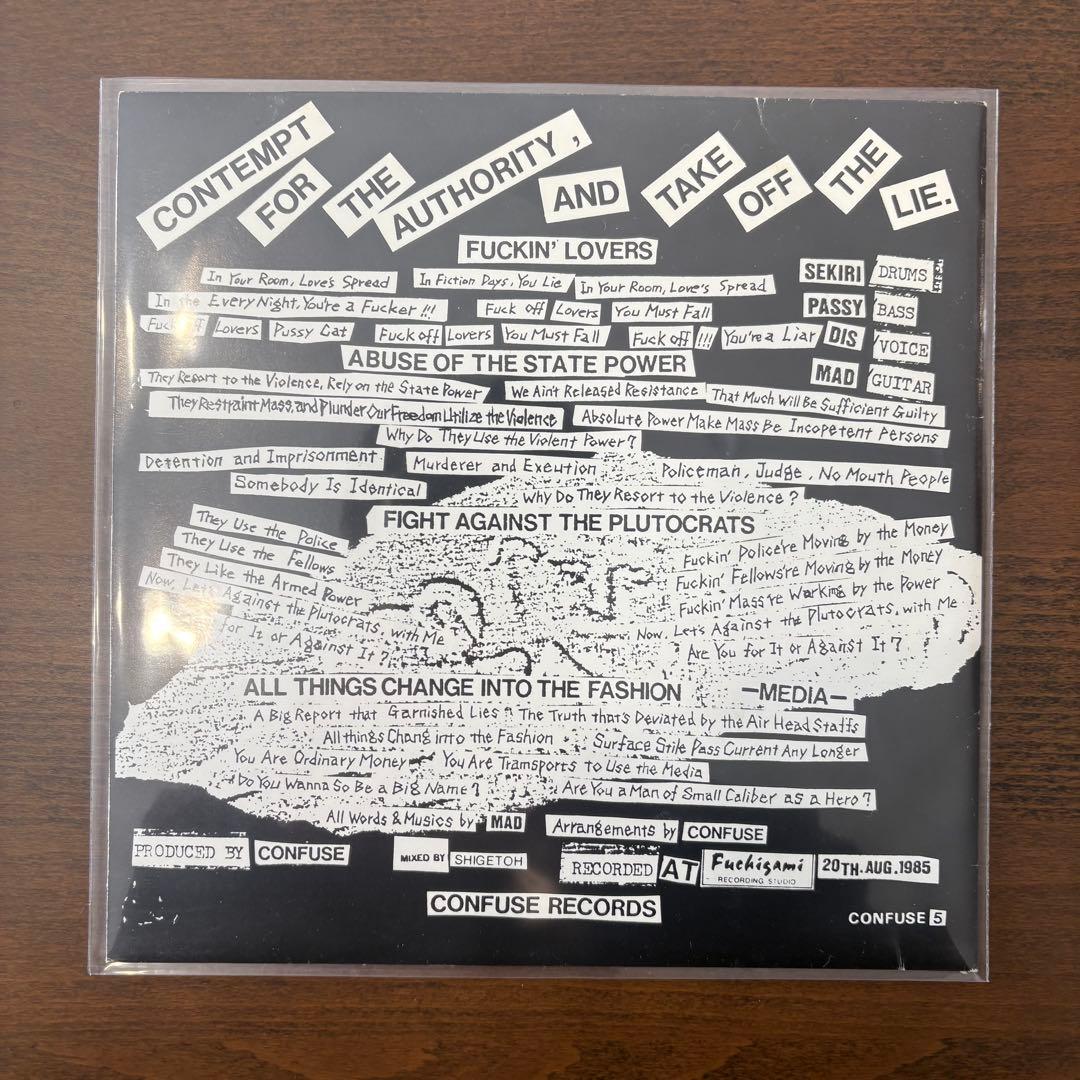 CONTEMPT FOR THE AUTHORITY, AND TAKE OFF THE LIE.
FUCKIN' LOVERS
In Your Room, Love's Spread In Fiction Days, You Lie In Your Room, Love's Spread
In the Every Night, You're a Fucker!!! Fuck off Lovers You Must Fall
Fuck off Lovers Pussy Cat Fuck off Lovers You Must Fall Fuck off!!! You're a Liar
SEKIRI DRUMS
PASSY BASS
DIS VOICE
MAD GUITAR
ABUSE OF THE STATE POWER
They Resort to the Violence, Rely on the State Power We Ain't Released Resistance That Much Will Be Sufficient Guilty
They Restraint Mass, and Plunder Our Freedom Utilize the Violence Absolute Power Make Mass Be Incopetent Persons
Why Do They Use the Violent Power?
Detention and Imprisonment Murderer and Exeution Policeman, Judge, No Mouth People
Somebody Is Identical Why Do They Resort to the Violence?
FIGHT AGAINST THE PLUTOCRATS
They Use the Police
They Use the Fellows
They Like the Armed Power
Now, Let's Against the Plutocrats, with Me
for It or Against It?
Fuckin' Police're Moving by the Money
Fuckin' Fellows're Moving by the Money
Fuckin' Mass're Working by the Power
Now, Let's Against the Plutocrats, with Me
Are You for It or Aganst It?
ALL THINGS CHANGE INTO THE FASHION —MEDIA—
A Big Report that Garnished Lies? The Truth that's Deviated by the Air Head Staffs
All things Chang into the Fashion Surface Stile Pass Current Any Longer
You Are Ordinary Money You Are Tramsports to Use the Media
Do You Wanna So Be a Big Name? Are You a Man of Small Caliber as a Hero?
All Words & Musics by MAD Arrangements by CONFUSE
PRODUCED BY CONFUSE MIXED BY SHIGETOH RECORDED AT Fuchigami RECORDING STUDIO 20TH. AUG. 1985
CONFUSE RECORDS
CONFUSE 5